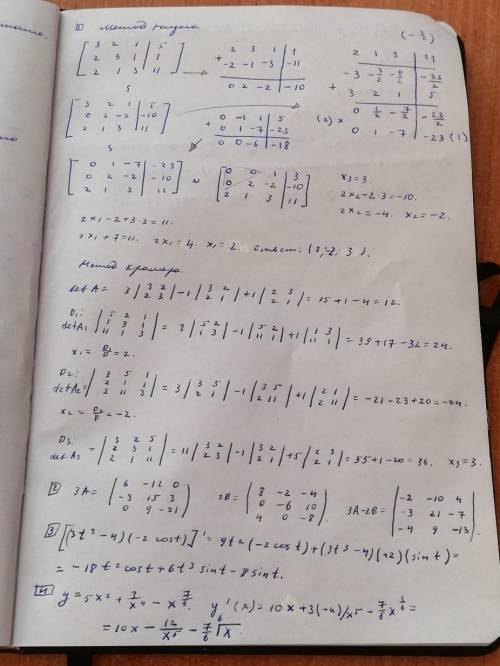 1 Метод Гаусса
(-3/2)
[3 2 1 | 5
2 3 1 | 1
2 1 3 | 11]
+ 2 3 1 | 1
-2 -1 -3 | -11
0 2 -2 | -10
2 1 3 | 11
-3 -3/2 -9/2 | -33/2
+ 3 2 1 | 5
(2) × 0 1/2 -7/2 | -23/2
0 1 -7 | -23 (1)
[3 2 1 | 5
0 2 -2 | -10
2 1 3 | 11]
+ 0 -1 1 | 5
0 1 -7 | -23
0 0 -6 | -18
[0 1 -7 | -23
0 2 -2 | -10
2 1 3 | 11]
~
[0 0 1 | 3
0 2 -2 | -10
2 1 3 | 11]
x3=3.
2x2-2·3=-10.
2x2=-4. x2=-2.
2x1-2+3·3=11.
2x1+7=11. 2x1=4. x1=2. Ответ: (2;-2; 3).
Метод Крамера.
det A = 3 |3 2 / 2 3| -1 |3 2 / 2 1| +1 |2 3 / 2 1| = 15+1-4=12.
D1: det A1 |5 2 1 / 1 3 1 / 11 1 3| = 3 |5 2 / 1 3| -1 |5 2 / 11 1| +1 |1 3 / 11 1| = 39+17-32=24.
x1= D1/D =2.
D2: det A2= |3 5 1 / 2 1 1 / 2 11 3| = 3 |3 5 / 2 1| -1 |3 5 / 2 11| +1 |2 1 / 2 11| = -21-23+20=-24.
x2 = D2/D =-2.
D3: det A3 = |3 2 5 / 2 3 1 / 2 1 11| = 11 |3 2 / 2 3| -1 |3 2 / 2 1| +5 |2 3 / 2 1| = 55+1-20=36. x3=3.
2 3A= (6 -12 0 / -3 15 3 / 0 9 -21) 2B= (8 -2 -4 / 0 -6 10 / 4 0 -8) 3A-2B= (-2 -10 4 / -3 21 -7 / -4 9 -13).
3 [(3t³-4)(-2cost)]' = 9t²(-2cost)+(3t³-4)(+2)(sint)=
= -18t²cost+6t³sint-8sint.
4 y=5x²+ 3/x⁴ - x^(7/6). y'(x)=10x+3(-4)/x⁵ - 7/6 x^(1/6) =
=10x- 12/x⁵ - 7/6 ⁶√x.